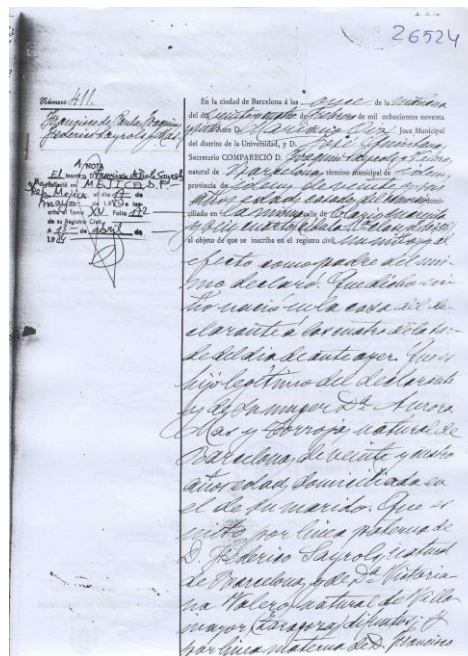 26524
Número 411.
Francisco de Paula, Joaquin
Federico Sayrols y Mas
NOTA
El inscrito D. Francisco de Paula Sayrols
Mas falleció en MEJICO D.F.
Rep. Mejico el día 17 de
mayo de 19
crita al Tomo XV. Folio 172
de su Registro Civil
A 13 de abril de
19
En la ciudad de Barcelona á las once de la mañana
del veintiuno de Febrero de mil ochocientos noventa
y D. Mariano Juez Municipal
del distrito de la Universidad, y D. José Quintana,
Secretario COMPARECIÓ D. Joaquin Sayrols y Valero,
natural de Barcelona, término municipal de idem,
provincia de idem, de veinte y
años edad, casado, domi-
ciliado en la misma, calle de
al objeto de que se inscriba en el registro civil, un niño; y al
efecto como padre del mis
mo declaró: Que dicho ni
ño nació en la casa del de
clarante á las cuatro de la tar
de del dia de ante ayer. Que es
hijo legítimo del declarante
y de su muger Dª Aurora
Mas y Torroja, natural de
Barcelona, de veinte y cuatro
años edad, domiciliada en
el de su marido. Que es
nieto por línea paterna de
D. Federico Sayrols, natural
de Barcelona, y de Dª Victoria-
na Valero, natural de Villa
mayor, (Zaragoza) difuntos; y
por línea materna de D. Francisco